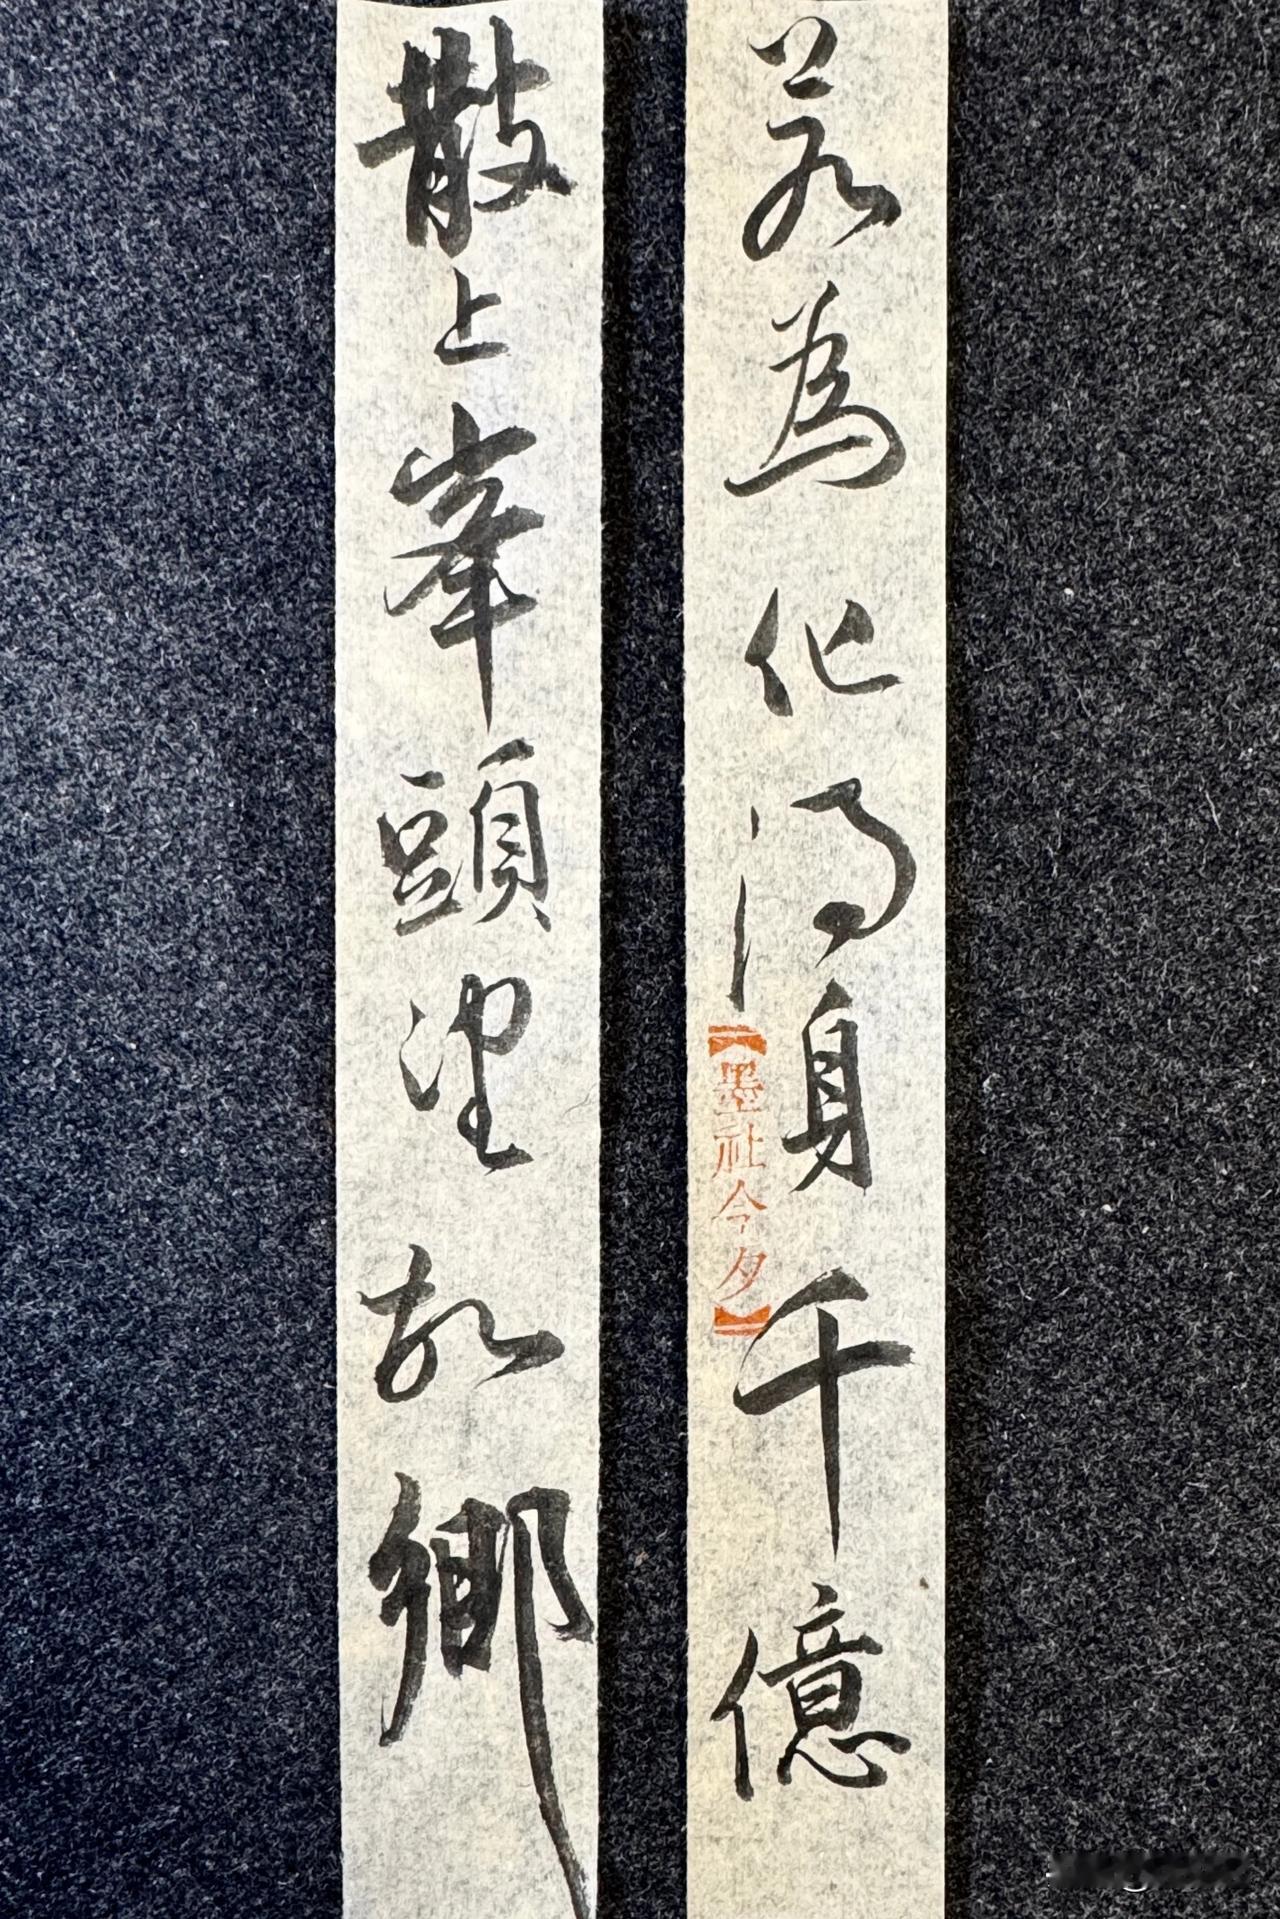 若為化得身千億
散上峯頭望故鄉
【墨社今夕】